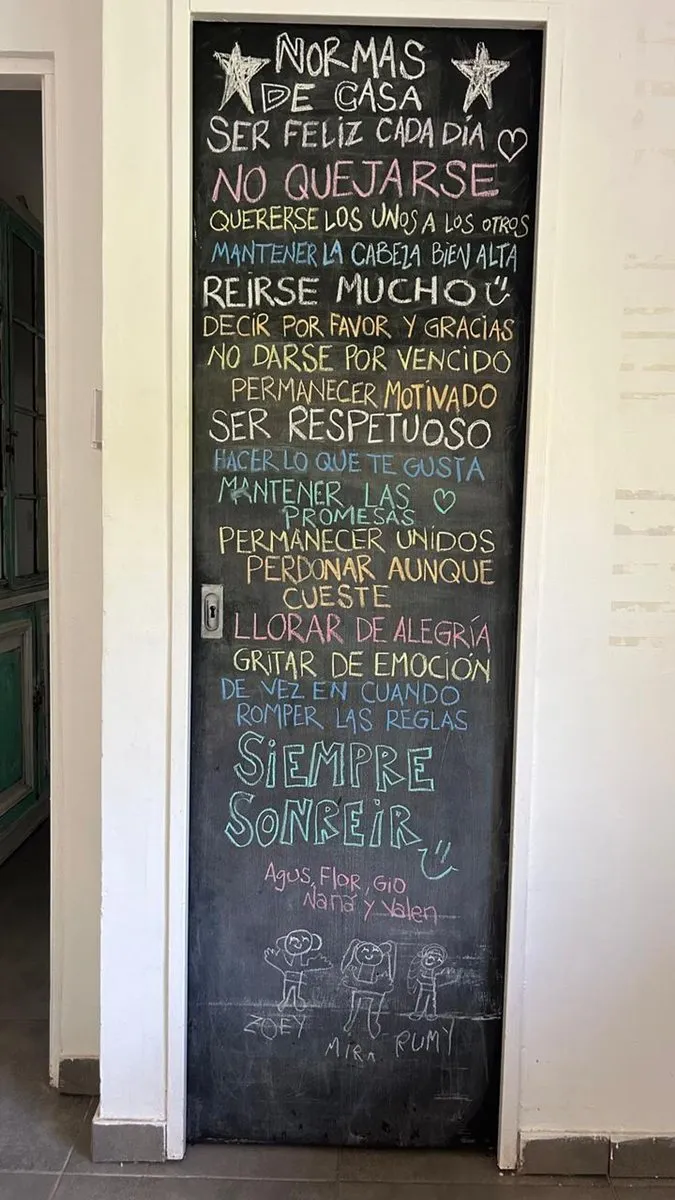 NORMAS
DE CASA
SER FELIZ CADA DÍA
NO QUEJARSE
QUERERSE LOS UNOS A LOS OTROS
MANTENER LA CABEZA BIEN ALTA
REIRSE MUCHO
DECIR POR FAVOR Y GRACIAS
NO DARSE POR VENCIDO
PERMANECER MOTIVADO
SER RESPETUOSO
HACER LO QUE TE GUSTA
MANTENER LAS
PROMESAS
PERMANECER UNIDOS
PERDONAR AUNQUE
CUESTE
LLORAR DE ALEGRÍA
GRITAR DE EMOCIÓN
DE VEZ EN CUANDO
ROMPER LAS REGLAS
SIEMPRE
SONREIR
Agus, Flor, Gio
Naná y Valen
ZOEY
MIRA
RUMY